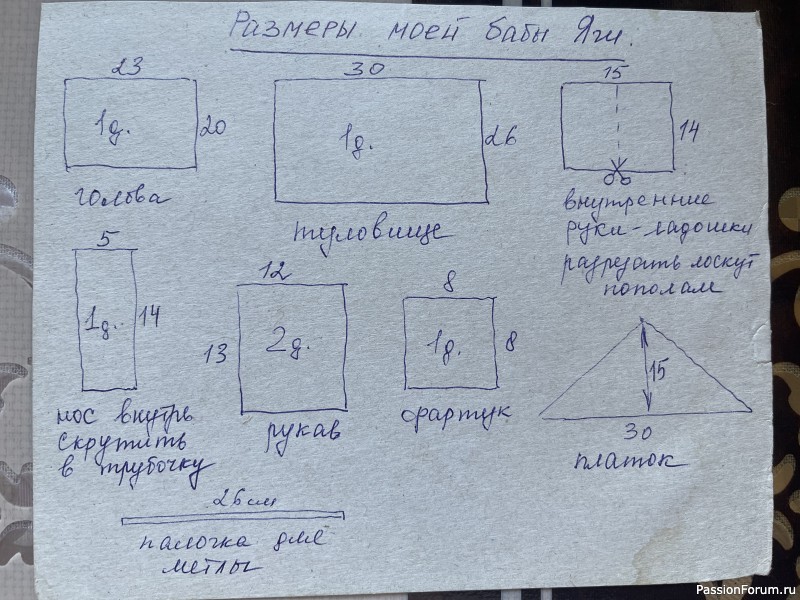 Размеры моей бабы Яги.
23
1д.
20
голова
30
1д.
26
туловище
15
14
внутренние
руки-ладошки
разрезать лоскут
пополам
5
1д.
14
нос внутрь
скрутить
в трубочку
12
13
2д.
рукав
8
1д.
8
фартук
15
30
платок
26 см
палочка для
метлы
PassionForum.ru